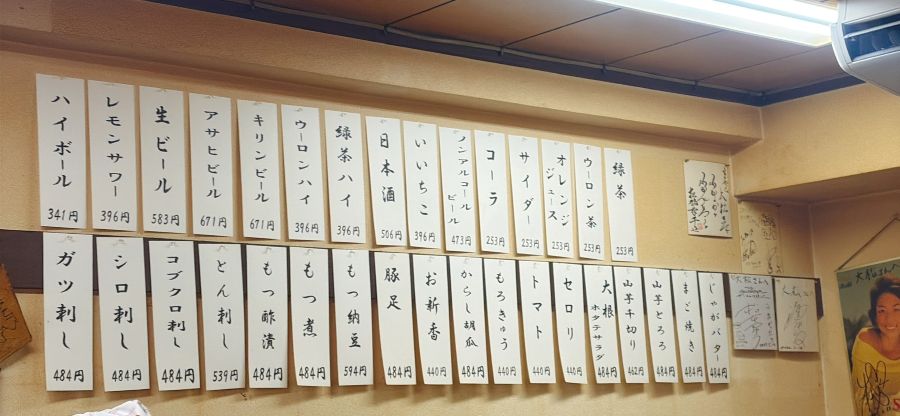 ハイボール
341円
レモンサワー
396円
生ビール
583円
アサヒビール
671円
キリンビール
671円
ウーロンハイ
396円
緑茶ハイ
396円
日本酒
506円
いいちこ
396円
ノンアルコール
ビール
473円
コーラ
253円
サイダー
253円
オレンジ
ジュース
253円
ウーロン茶
253円
緑茶
253円
ガツ刺し
484円
シロ刺し
484円
コブクロ刺し
484円
とん刺し
539円
もつ酢漬
484円
もつ煮
484円
もつ納豆
594円
豚足
484円
お新香
440円
からし胡瓜
484円
もろきゅう
440円
トマト
440円
セロリ
440円
大根
ホタテサラダ
484円
山芋千切り
462円
山芋とろろ
484円
まご焼き
484円
じゃがバター
484円